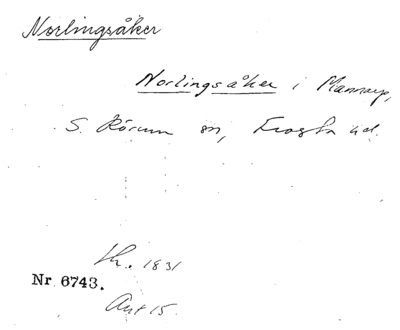 Norlingsåker
Norlingsåker i Mannarp,
S. Rörum sn, Frosta hd.
1831
Nr 6743.
Akt 15.